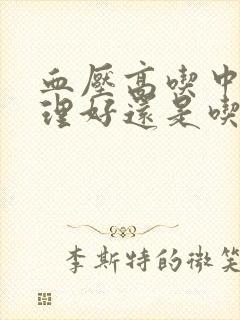 血壓高喫中
理好還是喫
李斯特的微笑